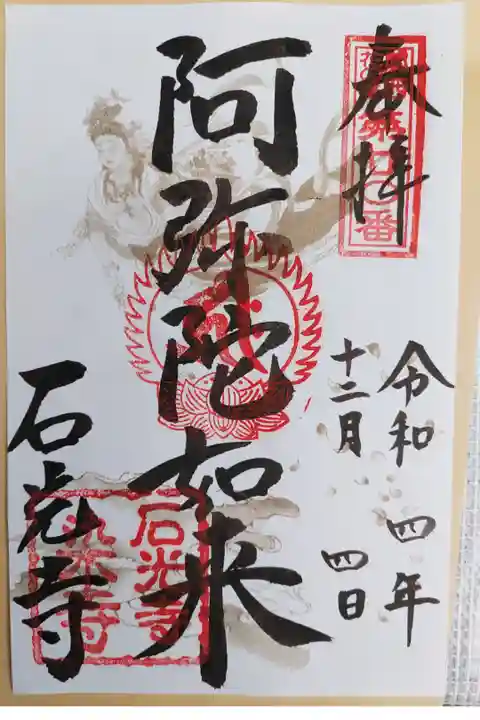 奉拝
令和四年
十二月四日
阿弥陀如来
石光寺
石光寺